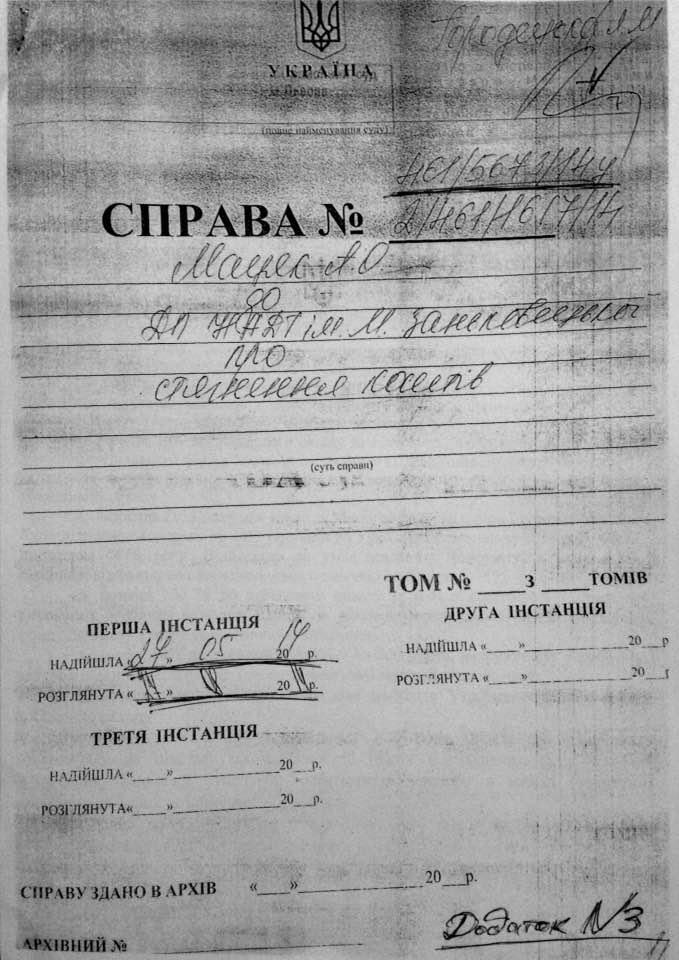 УКРАЇНА
Львова
(повне найменування суду)
461/5673/14ц
СПРАВА № 2/461/1617/14
Мацяк А.О.
до
ДП НАДТ ім. М. Заньковецької
про
стягнення коштів
(суть справи)
ТОМ № ____ з ____ ТОМІВ
ПЕРША ІНСТАНЦІЯ
НАДІЙШЛА «27» 05 2014 р.
РОЗГЛЯНУТА «__» ____ 20__р.
ДРУГА ІНСТАНЦІЯ
НАДІЙШЛА «____»____20__р
РОЗГЛЯНУТА «____»____20__г
ТРЕТЯ ІНСТАНЦІЯ
НАДІЙШЛА «____»____20__р.
РОЗГЛЯНУТА«____»____20__р.
СПРАВУ ЗДАНО В АРХІВ «____»____20__р.
АРХІВНИЙ №
Додаток №3